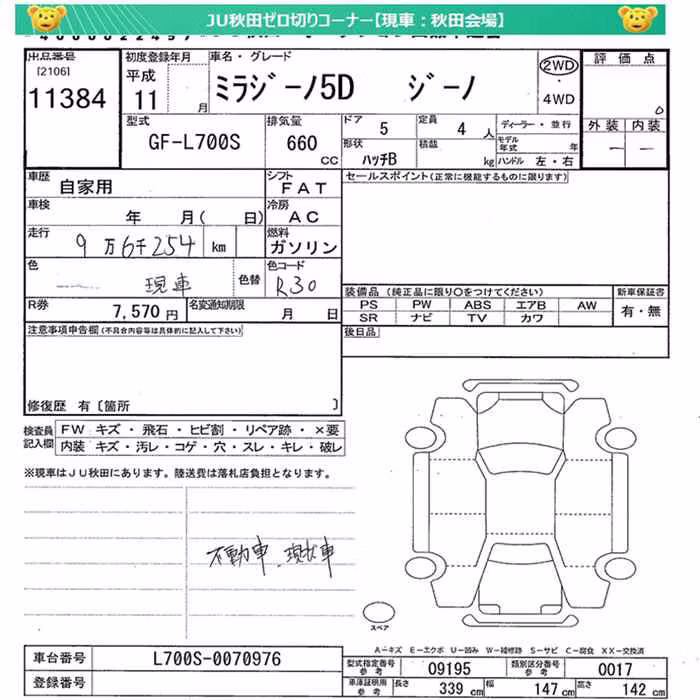 JU秋田ゼロ切りコーナー【現車：秋田会場】
出品番号
[2106]
11384
初度登録年月
平成
11
月
車名・グレード
ミラジーノ5D ジーノ
2WD
・
4WD
評価点
0
外装 内装
— —
型式
GF-L700S
排気量
660
CC
ドア
5
定員
4 人
ディーラー・並行
モデル年式 年
形状
ハッチB
積載
kg
ハンドル 左・右
車歴
自家用
シフト
FAT
セールスポイント(正常に機能するものに限ります)
車検
年 月( 日)
冷房
AC
走行
9万6千254 km
燃料
ガソリン
色
現車
色替
色コード
R30
装備品（純正品に限り○をつけてください）
新車保証書
PS PW ABS エアB AW
有・無
SR ナビ TV カワ
R券
7,570円
名変通知期限
月 日
後日品
注意事項申告欄(不具合内容等は具体的に記入して下さい)
修復歴 有〔箇所 〕
検査員記入欄
FW キズ・飛石・ヒビ割・リペア跡・×要
内装 キズ・汚レ・コゲ・穴・スレ・キレ・破レ
※現車はJU秋田にあります。陸送費は落札店負担となります。
不動車、現状車
スペア
A-キズ E-エクボ U-凹み W-補修跡 S-サビ C-腐食 XX-交換済
車台番号
L700S-0070976
登録番号
型式指定番号
参考
09195
類別区分番号
参考
0017
車庫証明用
参考
長さ
339 cm
幅
147 cm
高さ
142 cm